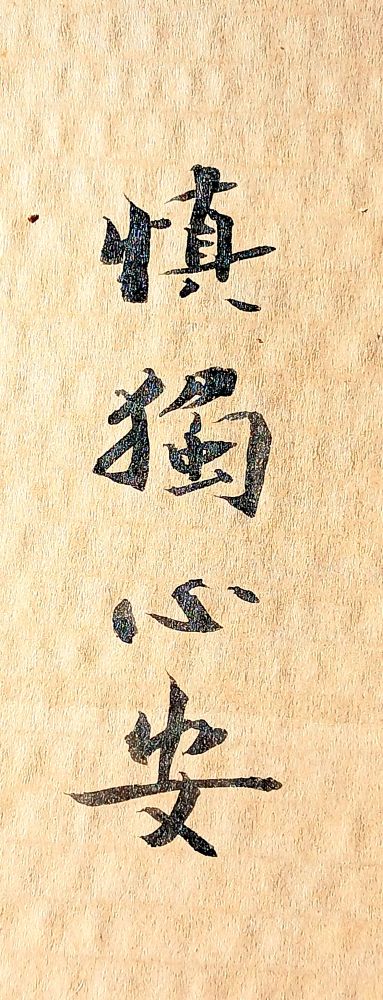 慎獨心安